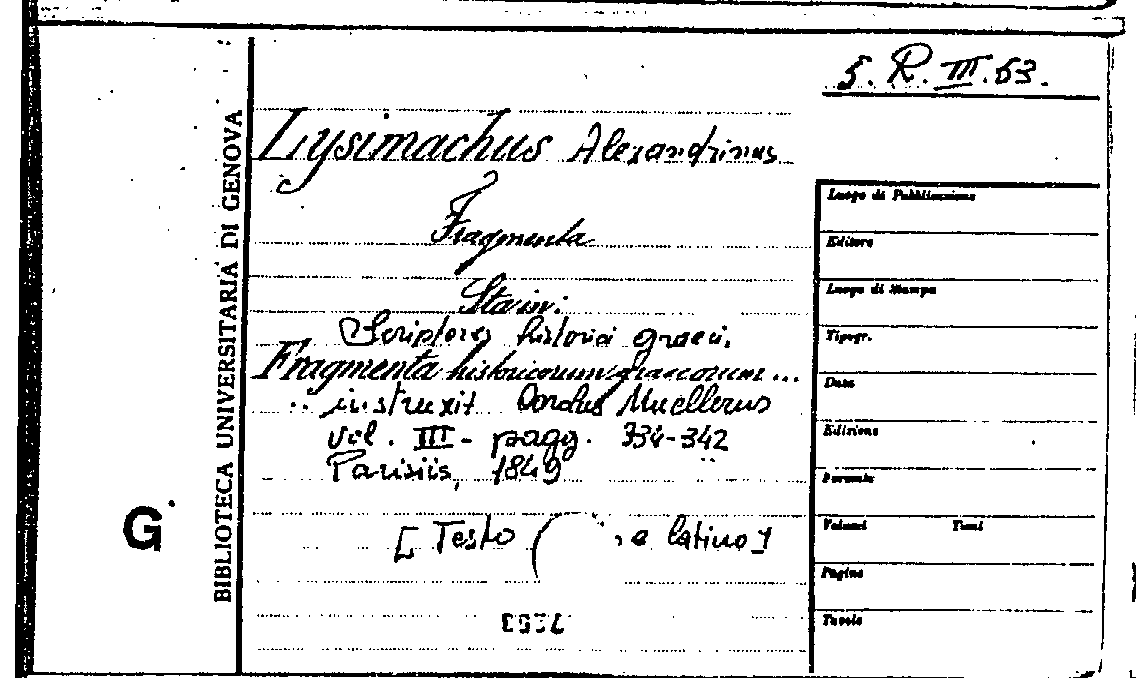 5. R. III. 53.
Lysimachus Alexandrinus
Fragmenta
Sta in:
Scriptores historici graeci.
Fragmenta historicorum graecorum ...
.. instruxit Muellerus
vol. III - pagg. 334-342
Parisiis, 1849
[ Testo e latino ]
BIBLIOTECA UNIVERSITARIA DI GENOVA
G
Luogo di Pubblicazione
Editore
Luogo di Stampa
Tipogr.
Data
Edizione
Formato
Volumi Tomi
Pagine
Tavole